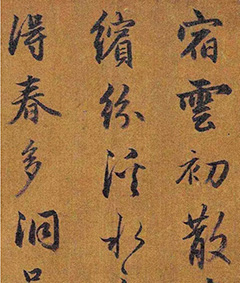 宿雲初散
繽紛溪水
得春多洞